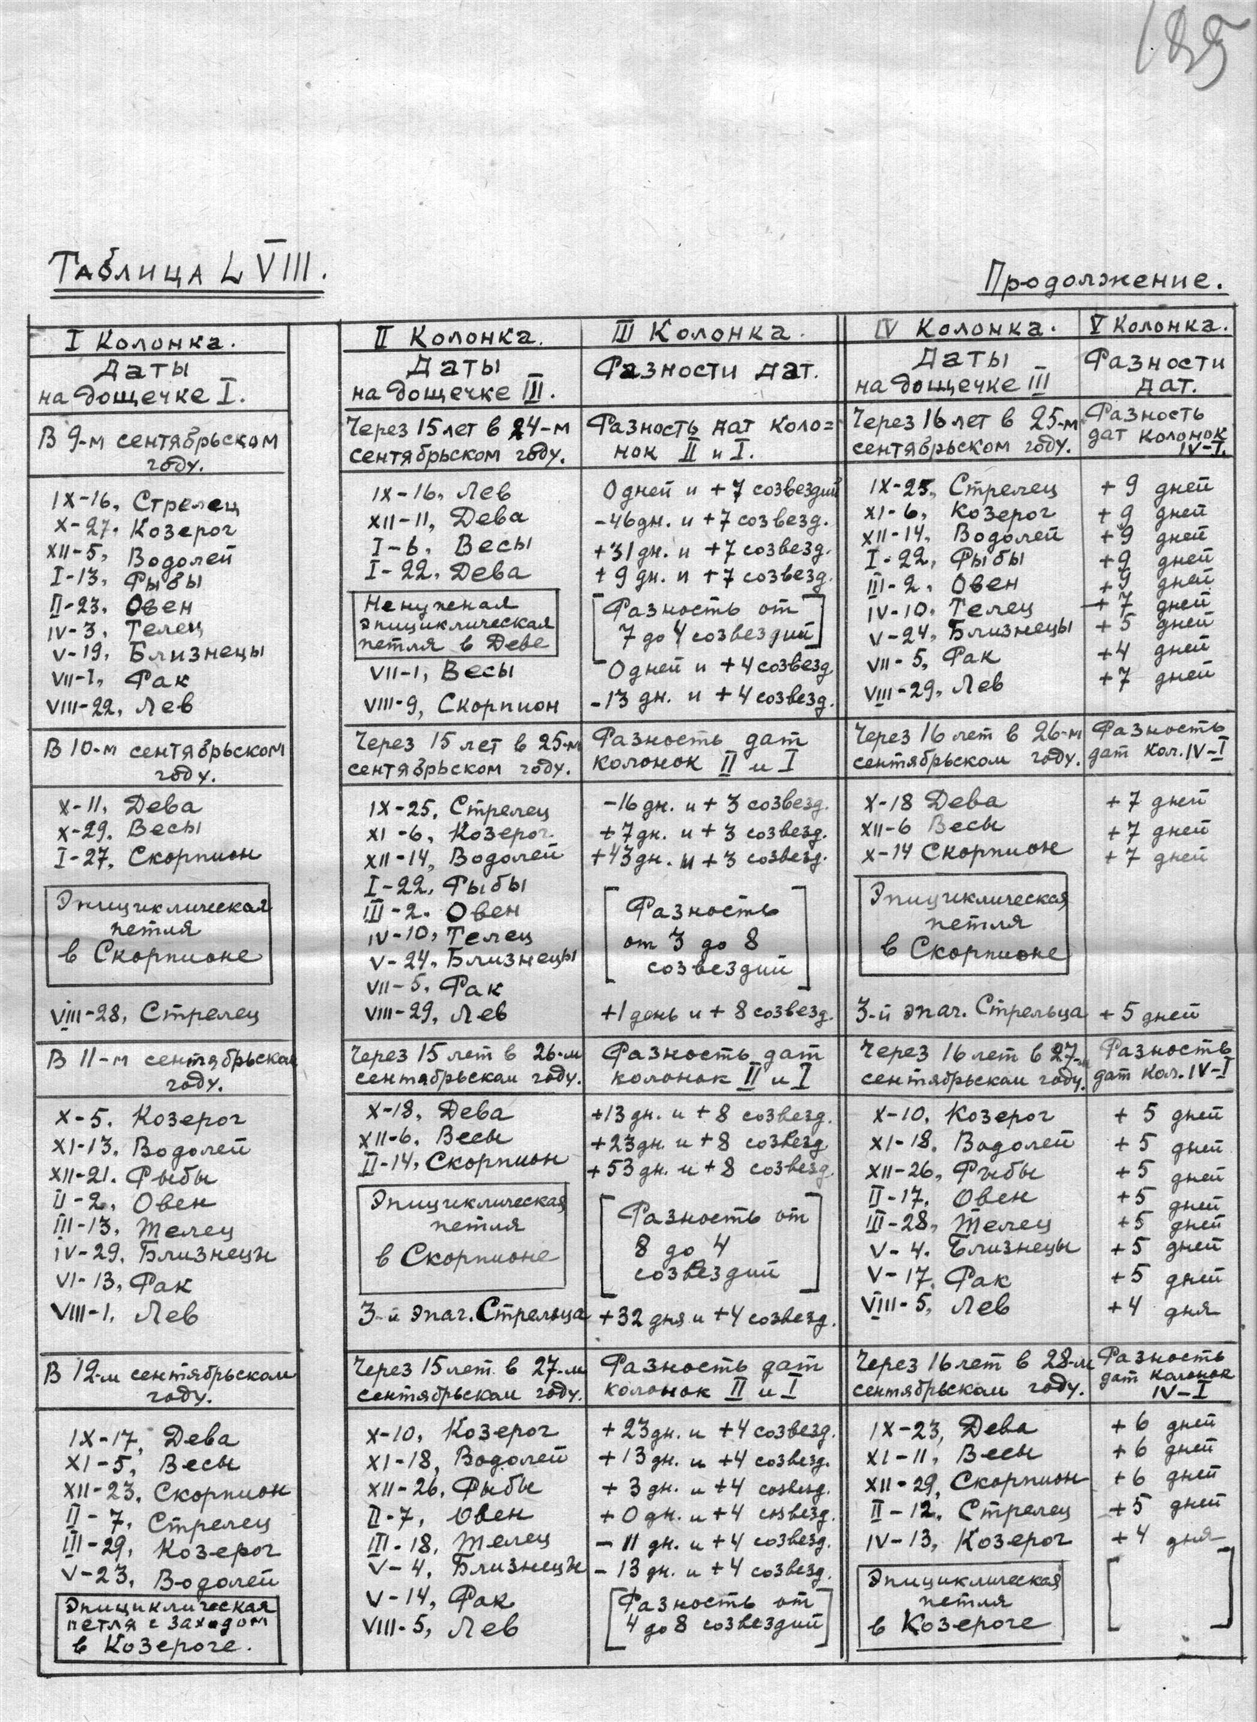 185
Таблица LVIII.
Продолжение.
I Колонка.
II Колонка.
III Колонка.
IV Колонка.
V Колонка.
Даты
на дощечке I.
Даты
на дощечке III.
Разности дат.
Даты
на дощечке III
Разности
дат.
В 9-м сентябрьском
году.
Через 15 лет в 24-м
сентябрьском году.
Разность дат коло=
нок II и I.
Через 16 лет в 25-м
сентябрьском году.
Разность
дат колонок
IV-I.
IX-16, Стрелец
X-27, Козерог
XII-5, Водолей
I-13, Рыбы
II-23, Овен
IV-3, Телец
V-19, Близнецы
VII-I, Рак
VIII-22, Лев
IX-16, Лев
XII-11, Дева
I-6, Весы
I-22, Дева
Ненужная
эпициклическая
петля в Деве
VII-1, Весы
VIII-9, Скорпион
0 дней и +7 созвездий
-46 дн. и +7 созвезд.
+31 дн. и +7 созвезд.
+9 дн. и +7 созвезд.
[Разность от
7 до 4 созвездий]
0 дней и +4 созвезд.
-13 дн. и +4 созвезд.
IX-25, Стрелец
XI-6, Козерог
XII-14, Водолей
I-22, Рыбы
III-2, Овен
IV-10, Телец
V-24, Близнецы
VII-5, Рак
VIII-29, Лев
+9 дней
+9 дней
+9 дней
+9 дней
+9 дней
+7 дней
+5 дней
+4 дней
+7 дней
В 10-м сентябрьском
году.
Через 15 лет в 25-м
сентябрьском году.
Разность дат
колонок II и I
Через 16 лет в 26-м
сентябрьском году.
Разность
дат кол. IV-I
X-11, Дева
X-29. Весы
I-27, Скорпион
Эпициклическая
петля
в Скорпионе
VIII-28, Стрелец
IX-25, Стрелец
XI-6, Козерог
XII-14, Водолей
I-22, Рыбы
III-2. Овен
IV-10, Телец
V-24, Близнецы
VII-5. Рак
VIII-29, Лев
-16 дн. и +3 созвезд.
+7 дн. и +3 созвезд.
+43 дн. и +3 созвезд.
[Разность
от 3 до 8
созвездий]
+1 день и +8 созвезд.
X-18 Дева
XII-6 Весы
X-14 Скорпион
Эпициклическая
петля
в Скорпионе
3-й эпаг. Стрельца
+7 дней
+7 дней
+7 дней
+5 дней
В 11-м сентябрьском
году.
Через 15 лет в 26-м
сентябрьском году.
Разность дат
колонок II и I
Через 16 лет в 27-м
сентябрьском году.
Разность
дат кол. IV-I
X-5. Козерог
XI-13. Водолей
XII-21. Рыбы
II-2, Овен
III-13, Телец
IV-29. Близнецы
VI-13, Рак
VIII-1, Лев
X-18, Дева
XII-6, Весы
II-14, Скорпион
Эпициклическая
петля
в Скорпионе
3-й эпаг. Стрельца
+13 дн. и +8 созвезд.
+23 дн. и +8 созвезд.
+53 дн. и +8 созвезд.
[Разность от
8 до 4
созвездий]
+32 дня и +4 созвезд.
X-10, Козерог
XI-18. Водолей
XII-26, Рыбы
II-17. Овен
III-28, Телец
V-4. Близнецы
V-17. Рак
VIII-5, Лев
+5 дней
+5 дней
+5 дней
+5 дней
+5 дней
+5 дней
+5 дней
+4 дня
В 12-м сентябрьском
году.
Через 15 лет в 27-м
сентябрьском году.
Разность дат
колонок II и I
Через 16 лет в 28-м
сентябрьском году.
Разность
дат колонок
IV-I
IX-17, Дева
XI-5, Весы
XII-23, Скорпион
II-7, Стрелец
III-29, Козерог
V-23, Водолей
Эпициклическая
петля с заходом
в Козероге.
X-10, Козерог
XI-18, Водолей
XII-26, Рыбы
II-7, Овен
III-18, Телец
V-4, Близнецы
V-14, Рак
VIII-5, Лев
+23 дн. и +4 созвезд.
+13 дн. и +4 созвезд.
+3 дн. и +4 созвезд.
+0 дн. и +4 созвезд.
-11 дн. и +4 созвезд.
-13 дн. и +4 созвезд.
[Разность от
4 до 8 созвездий]
IX-23, Дева
XI-11, Весы
XII-29, Скорпион
II-12, Стрелец
IV-13, Козерог
Эпициклическая
петля
в Козероге
+6 дней
+6 дней
+6 дней
+5 дней
+4 дня
[ ]